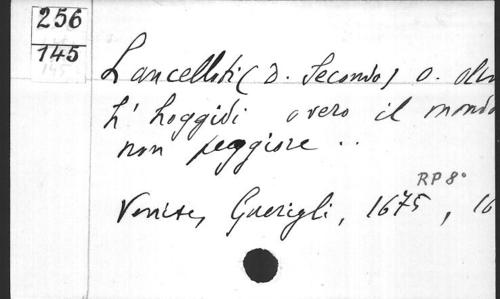 256
145
Lancelloti (D. Secondo) o. oliv
L' hoggidi overo il mondo
non peggiore ..
RP 8°
Venise, Guerigli, 1675, 16